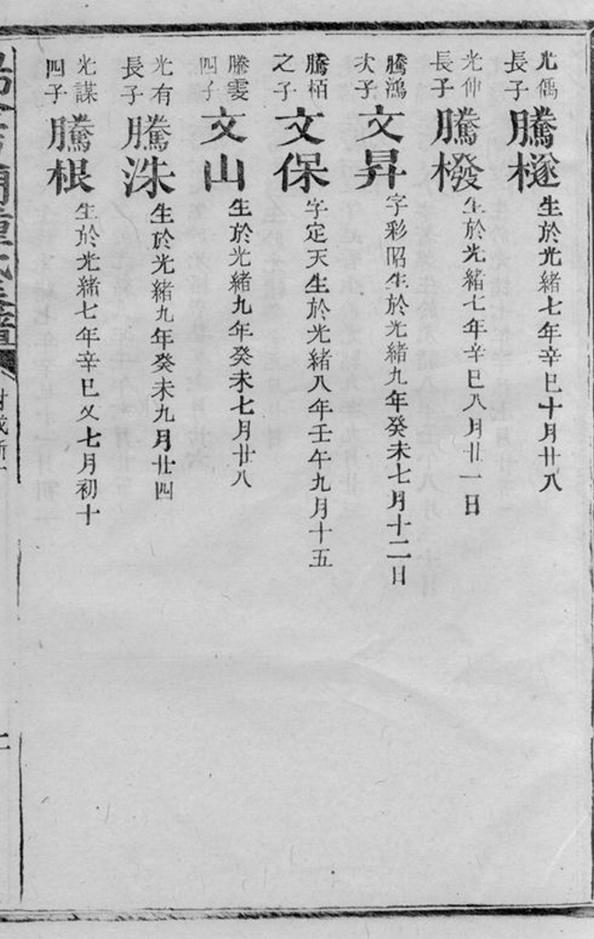 光儰長子 騰檖 生於光緒七年辛巳十月廿八
光仲長子 騰橃 生於光緒七年辛巳八月廿一日
騰鴻次子 文昇 字彩昭生於光緒九年癸未七月十二日
騰栢之子 文保 字定天生於光緒八年壬午九月十五
騰雯四子 文山 生於光緒九年癸未七月廿八
光有長子 騰洙 生於光緒九年癸未九月廿四
光謀四子 騰根 生於光緒七年辛巳又七月初十